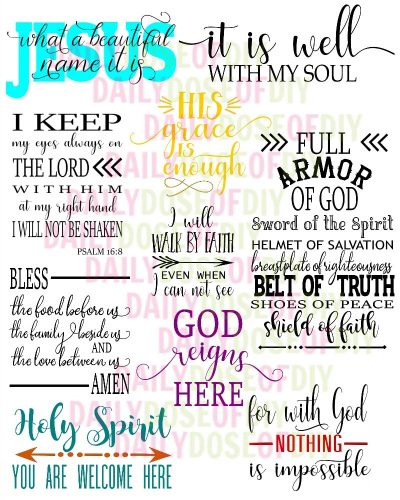 JESUS
what a beautiful
name it is
it is well
WITH MY SOUL
HIS
grace
IS
enough
I KEEP
my eyes always on
THE LORD
WITH HIM
at my right hand
I WILL NOT BE SHAKEN
PSALM 16:8
FULL
ARMOR
OF GOD
Sword of the Spirit
HELMET OF SALVATION
breastplate of righteousness
BELT OF TRUTH
SHOES OF PEACE
shield of faith
I will
WALK BY FAITH
EVEN WHEN
I can not see
BLESS
the food before us
the family beside us
AND
the love between us
AMEN
GOD
reigns
HERE
Holy Spirit
YOU ARE WELCOME HERE
for with God
NOTHING
is impossible
DAILY
DOSE OF DIY